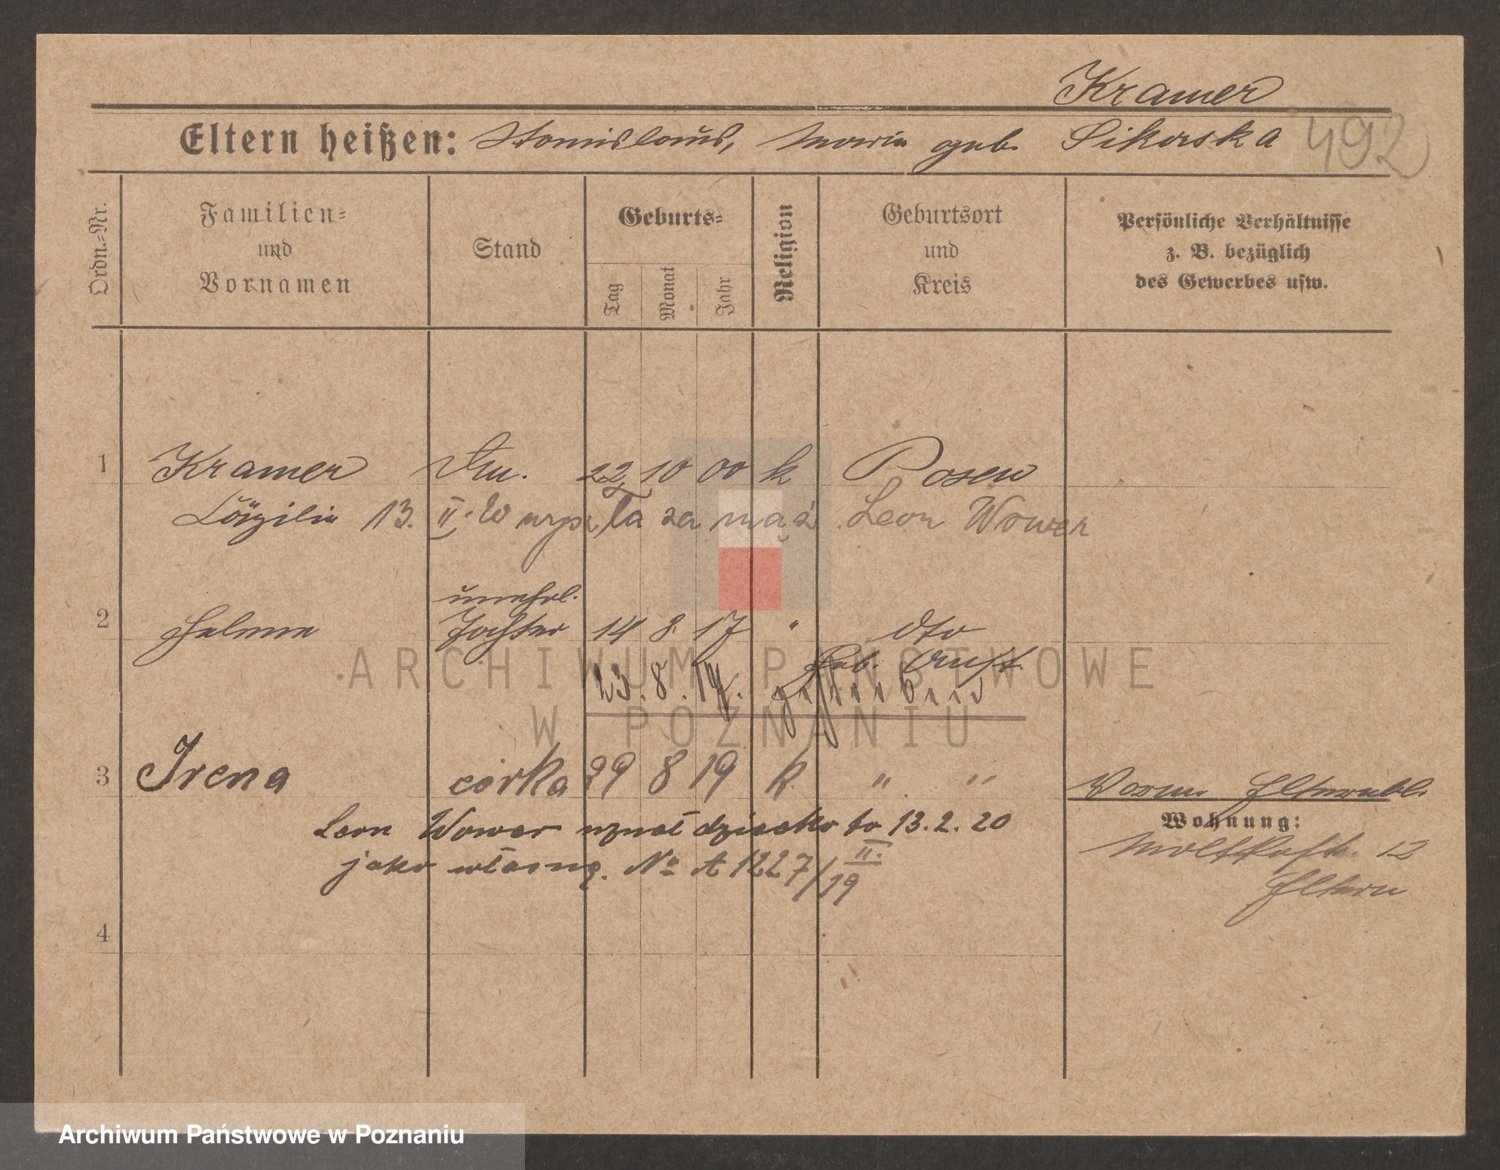 Kramer
Eltern heißen: Stanislaus, Maria geb. Sikorska 492
Ordn.=Nr.
Familien=
und
Vornamen
Stand
Geburts=
Tag
Monat
Jahr
Religion
Geburtsort
und
Kreis
Persönliche Verhältnisse
z. B. bezüglich
des Gewerbes usw.
1 Kramer 22 10 00 k Posen
Cäzilie 13. II. 20 wyszła za mąż Leon Wower
unehel.
2 Helene Tochter 14 8 17 " dto
Geb. Anst.
23. 8. 19. gestorben
3 Irena córka 29 8 19 k. " "
Leon Wower uznał dziecko to 13.2.20
jako własne. No A 1227/19 II.
4
Wohnung:
Moltkestr. 12
Eltern
ARCHIWUM PAŃSTWOWE
W POZNANIU
Archiwum Państwowe w Poznaniu